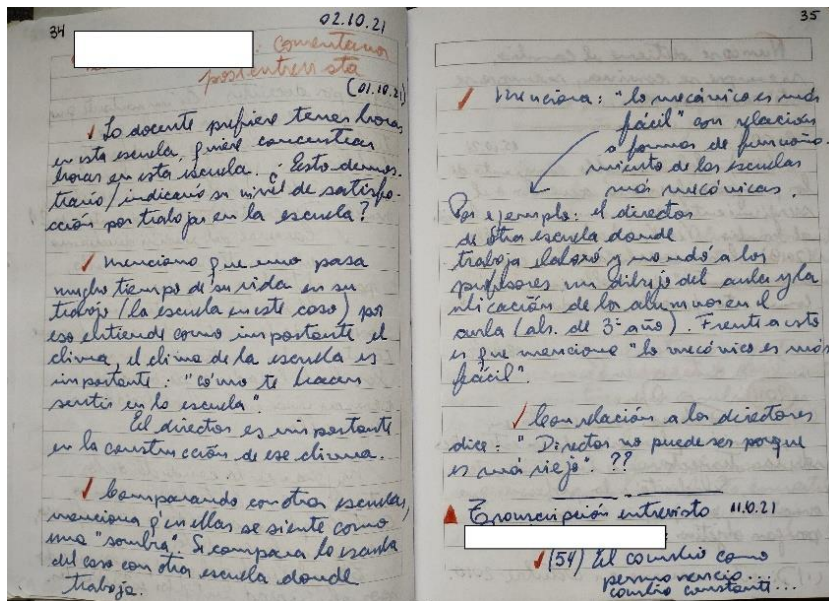 34
02.10.21
: comentarios
postentrevista
(01.10.21)
✓ La docente prefiere tener horas
en esta escuela, quiere concentrar
horas en esta escuela. ¿Esto demos-
traría/indicaría su nivel de satisfa-
cción por trabajar en la escuela?
✓ menciona que uno pasa
mucho tiempo de su vida en su
trabajo (la escuela en este caso) por
eso entiende como importante el
clima, el clima de la escuela es
importante: "cómo te hacen
sentir en la escuela".
El director es importante
en la construcción de ese clima.
✓ Comparando con otras escuelas,
menciona q' en ellas se siente como
una "sombra". Si compara la escuela
del caso con otra escuela donde
trabaja.
35
✓ Menciona: "lo mecánico es más
fácil" con relación
a formas de funciona-
miento de las escuelas
más mecánicas.
Por ejemplo: el director
de otra escuela donde
trabaja elaboró y mandó a los
profesores un dibujo del aula y la
ubicación de los alumnos en el
aula (als. de 3º año). Frente a esto
es que menciona "lo mecánico es más
fácil".
✓ Con relación a los directores
dice: "Director no puede ser porque
es más viejo". ??
Transcripción entrevista 11.10.21
✓ (54) El cambio como
permanencia...
cambio constante...